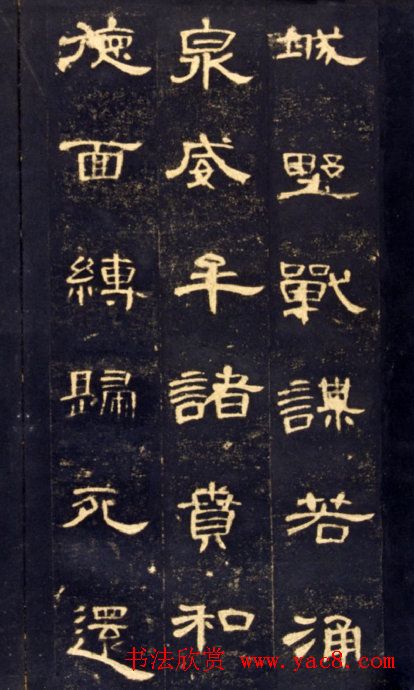 城野戰謀若涌
泉威牟諸賁和
德面縛歸死還
书法欣赏 www.yac8.com